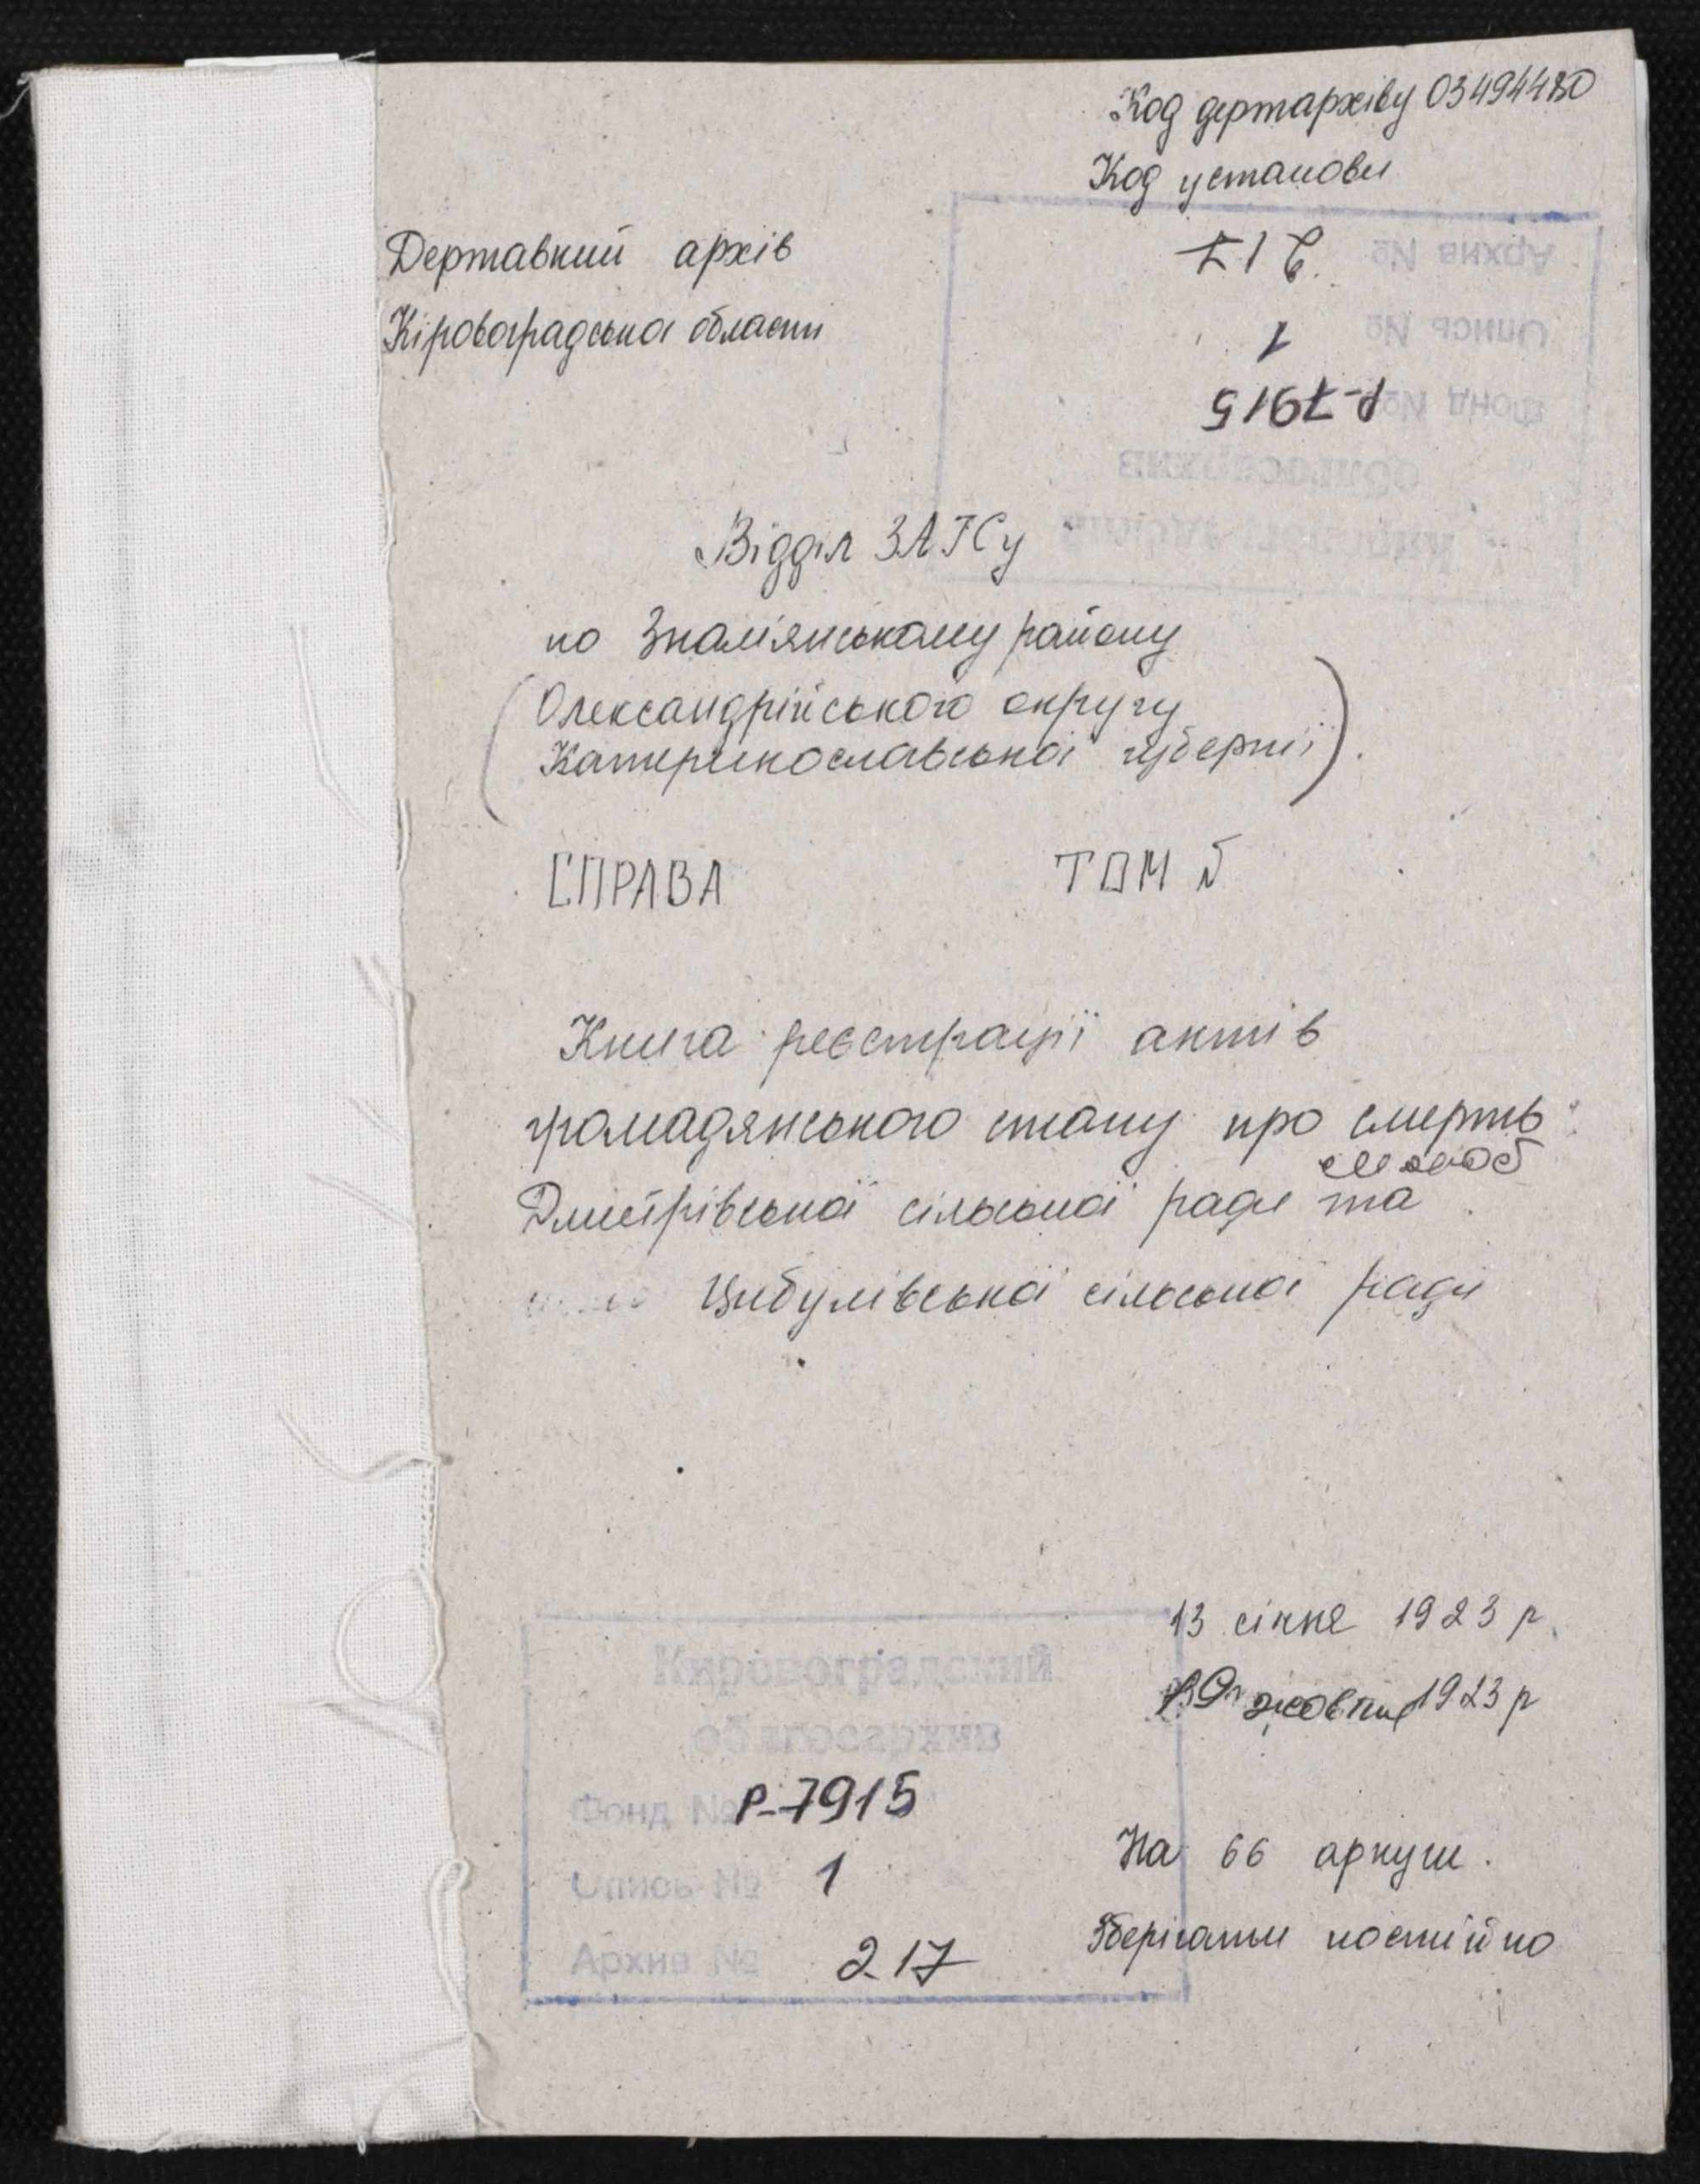 Код держархіву 03494480
Код установи
Державний архів
Кіровоградської області
Архив № 217
Опись № 1
Фонд № Р-7915
облгосархив
Відділ ЗАГСу
по Знам'янському району
(Олександрійського округу
Катеринославської губернії).
СПРАВА ТОМ 5
Книга реєстрації актів
громадянського стану про смерть
Дмитрівської сільської ради та
Цибулівської сільської ради
13 січня 1923 р.
жовтня 1923 р
Кировоградский
облгосархив
Фонд № Р-7915
Опись № 1
Архив № 217
На 66 аркуш.
Зберігати постійно